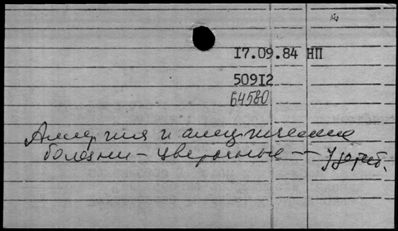 17.09.84 НП
50912
64580
Аллергия и аллергические
болезни - цветочные -